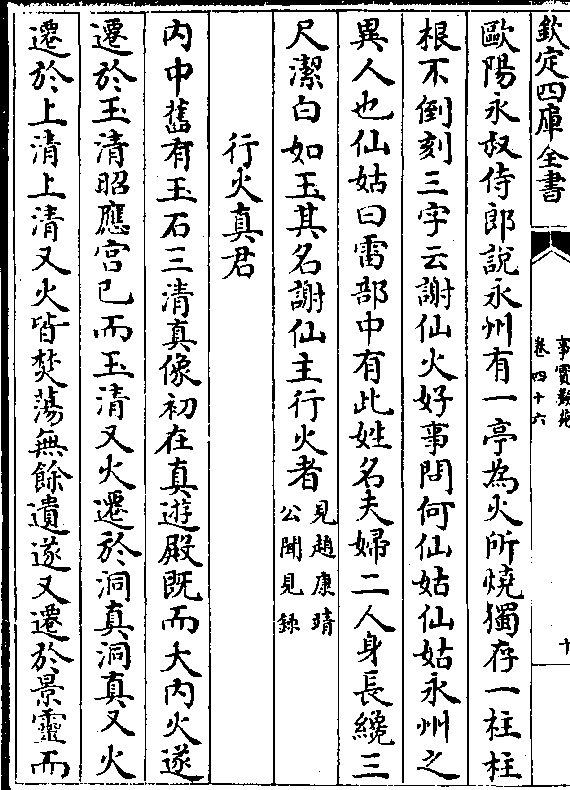 欽定四庫全書
事實類苑
卷四十六
十
歐陽永叔侍郎說永州有一亭為火所燒獨存一柱柱
根不倒刻三字云謝仙火好事問何仙姑仙姑永州之
異人也仙姑曰雷部中有此姓名夫婦二人身長纔三
尺潔白如玉其名謝仙主行火者
見趙康靖
公聞見錄
行火真君
內中舊有玉石三清真像初在真遊殿既而大內火遂
遷於玉清昭應宮已而玉清又火遷於洞真洞真又火
遷於上清上清又火皆焚蕩無餘遺遂又遷於景靈而